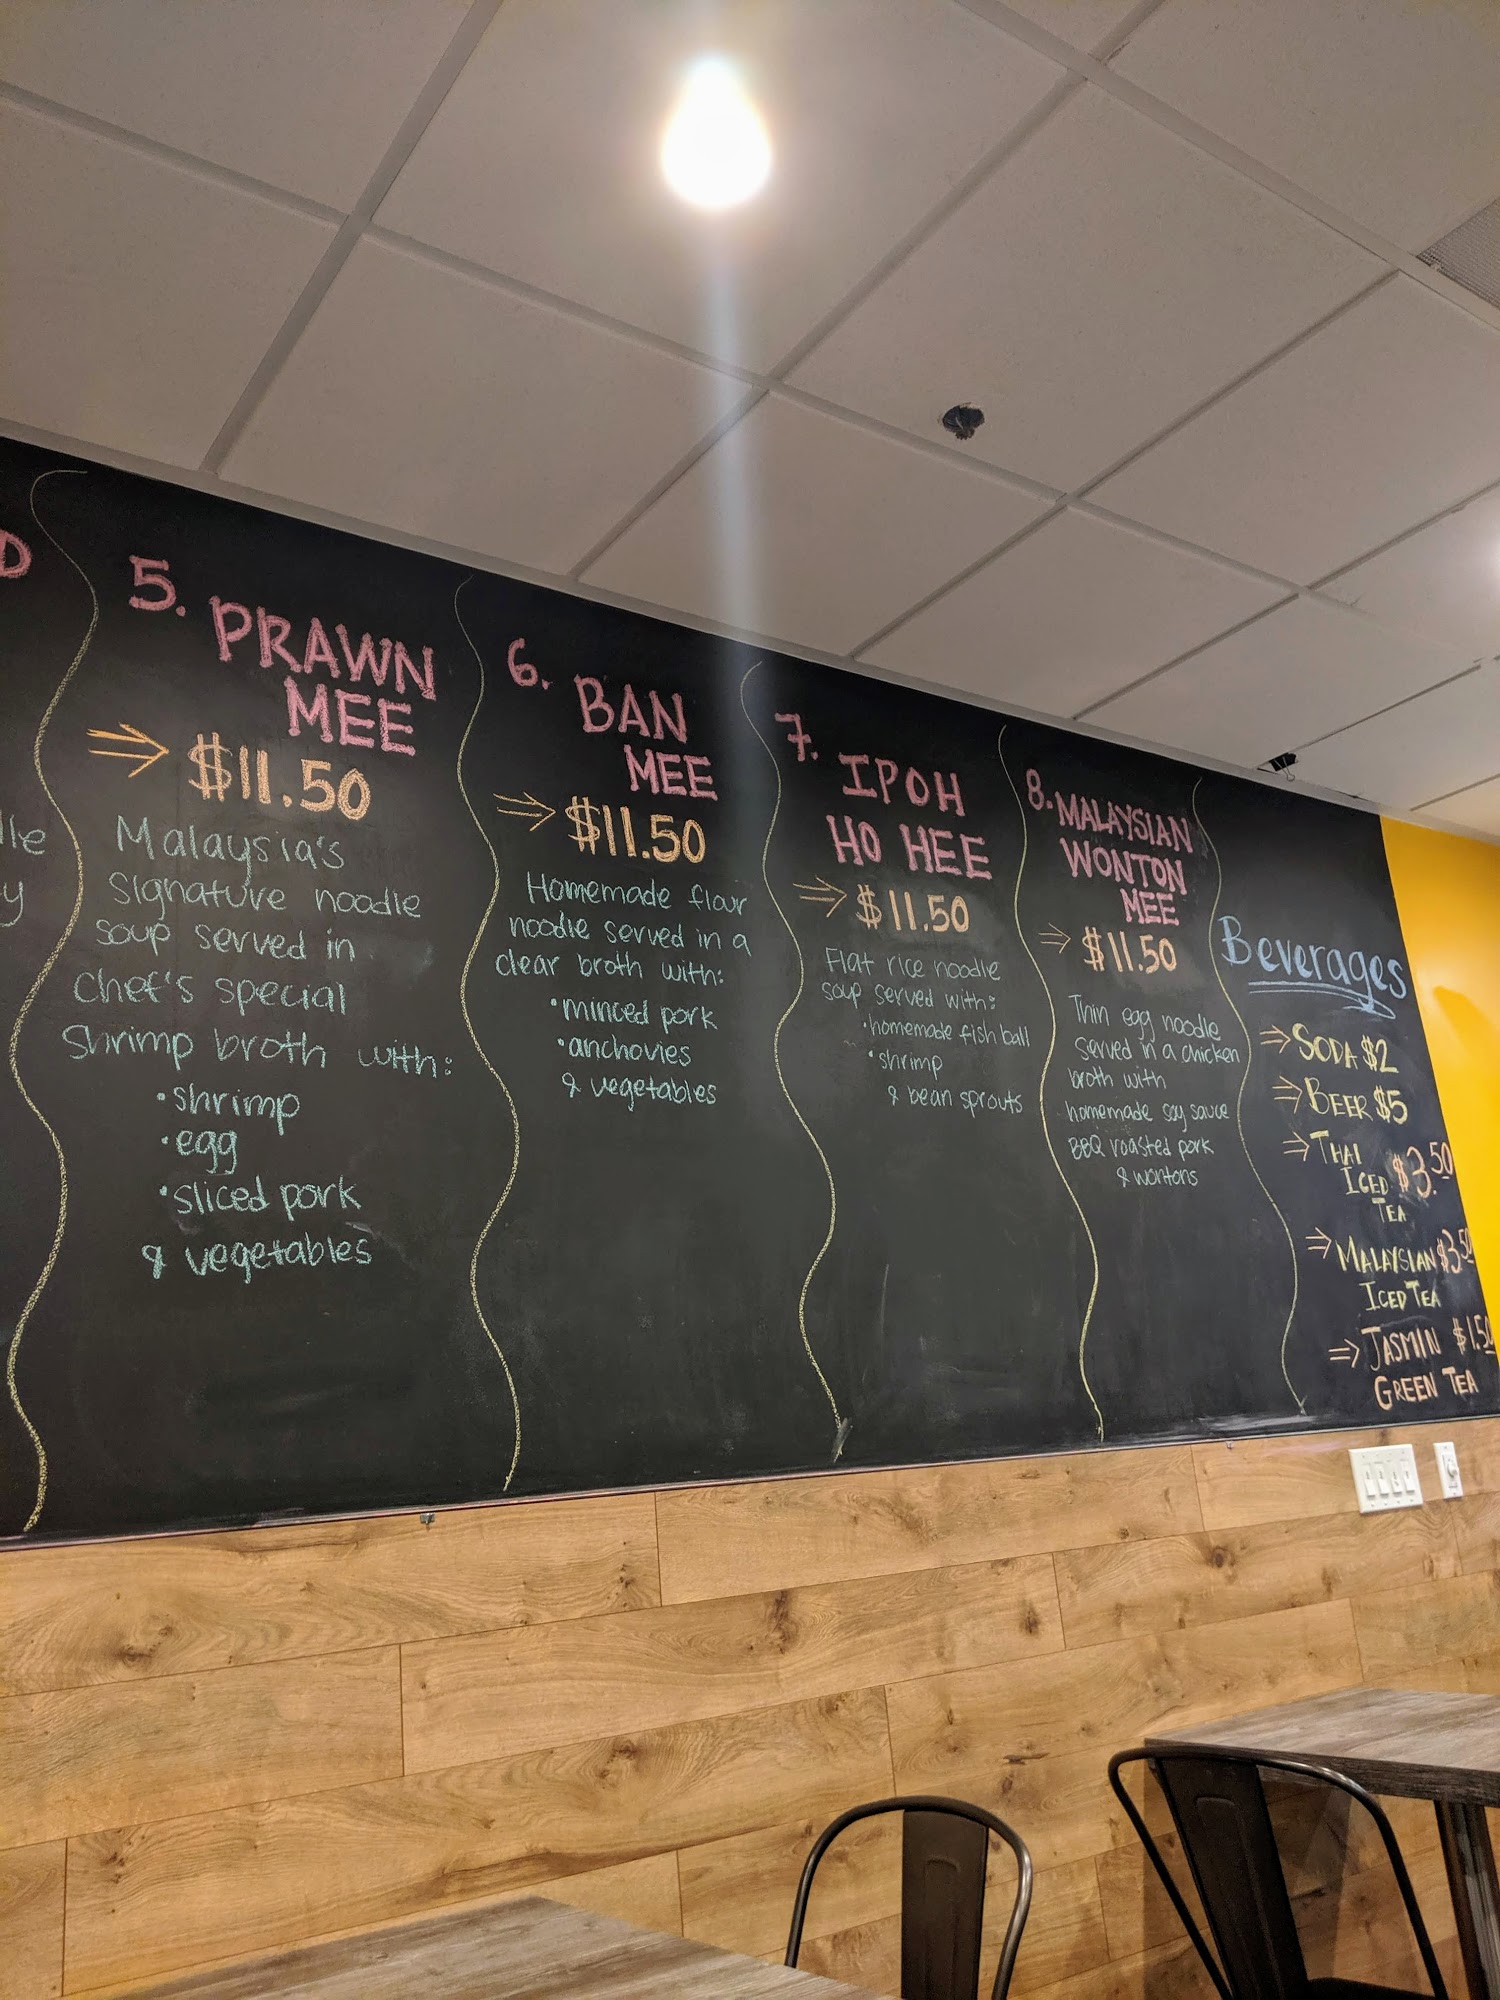 D
lle
y
5. PRAWN
MEE
⇒ $11.50
Malaysia's
Signature noodle
soup served in
chef's special
Shrimp broth with:
• shrimp
• egg
• sliced pork
& vegetables
6. BAN
MEE
⇒ $11.50
Homemade flour
noodle served in a
clear broth with:
• minced pork
• anchovies
& vegetables
7. IPOH
HO HEE
⇒ $11.50
Flat rice noodle
soup served with:
• homemade fish ball
• shrimp
& bean sprouts
8. MALAYSIAN
WONTON
MEE
⇒ $11.50
Thin egg noodle
served in a chicken
broth with
homemade soy sauce
BBQ roasted pork
& wontons
Beverages
⇒ SODA $2
⇒ BEER $5
⇒ THAI
ICED $3.50
TEA
⇒ MALAYSIAN $3.50
ICED TEA
⇒ JASMIN $1.50
GREEN TEA